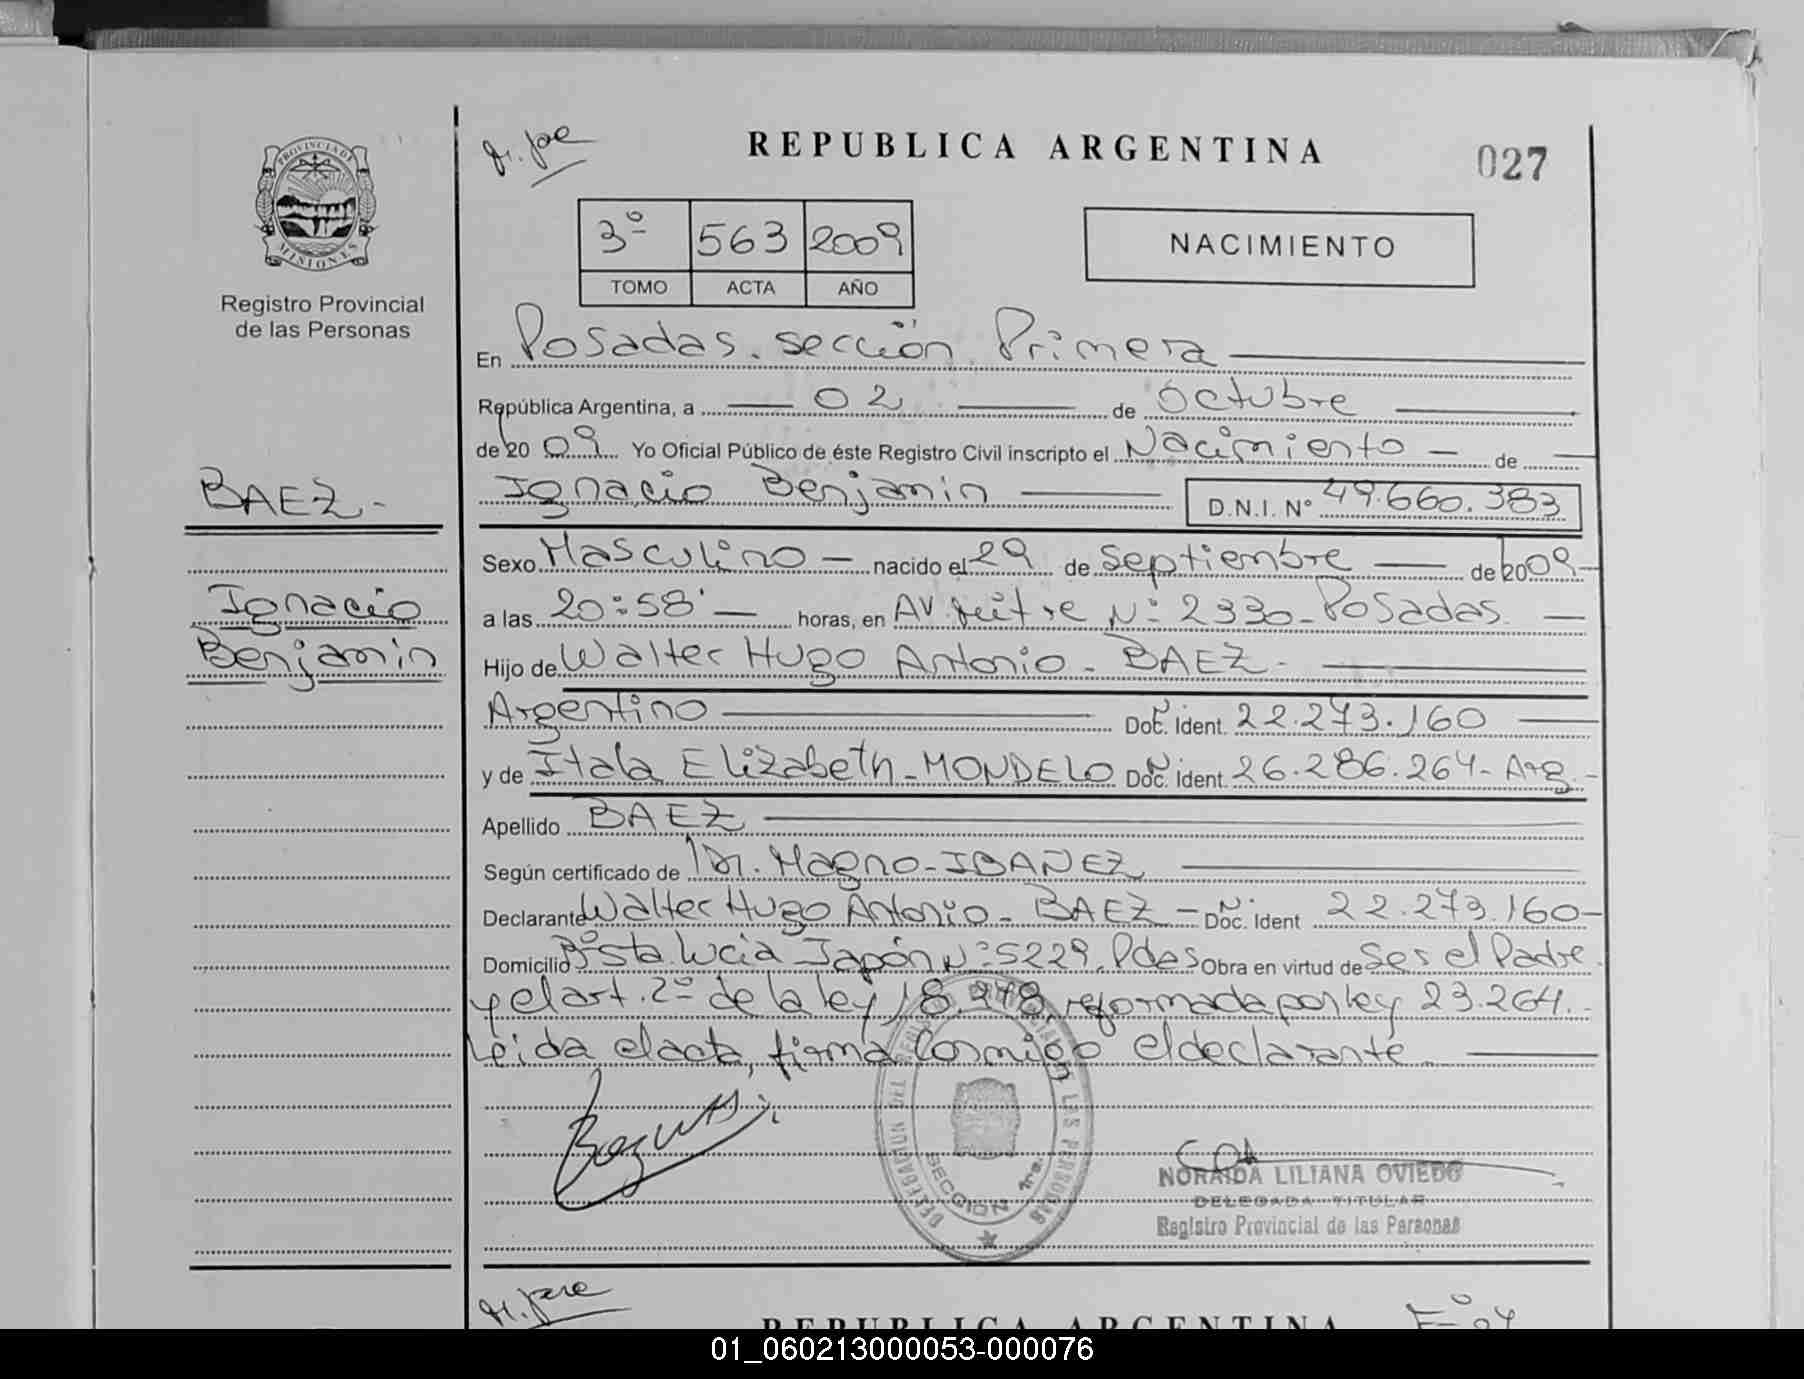 REPUBLICA ARGENTINA
027
PROVINCIA DE
MISIONES
Registro Provincial
de las Personas
3º 563 2009
TOMO ACTA AÑO
NACIMIENTO
En Posadas. sección Primera
República Argentina, a 02 de Octubre
de 20 09 Yo Oficial Público de éste Registro Civil inscripto el Nacimiento de
BAEZ-
Ignacio Benjamin D.N.I. Nº 49.660.383
Sexo Masculino nacido el 29 de Septiembre de 2009
Ignacio
Benjamin
a las 20:58' horas, en Av. Mitre Nº 2330-Posadas.
Hijo de Walter Hugo Antonio - BAEZ-
Argentino Doc. Ident. 22.273.160
y de Itala Elizabeth-MONDELO Doc. Ident. 26.286.264- Arg.-
Apellido BAEZ
Según certificado de Dr. Magno-IBAÑEZ
Declarante Walter Hugo Antonio- BAEZ - Doc. Ident 22.273.160-
Domicilio Bº Sta. Lucia Japón Nº 5229. Pdas Obra en virtud de Ser el Padre
y el art. 2º de la ley 18.248, reformada por ley 23.264.-
Leida el acta, firma conmigo el declarante.
DELEGACION DEL REGISTRO PROVINCIAL DE LAS PERSONAS
SECCION 1ra.
NORAIDA LILIANA OVIEDO
DELEGADA TITULAR
Registro Provincial de las Personas
REPUBLICA ARGENTINA
01_060213000053-000076